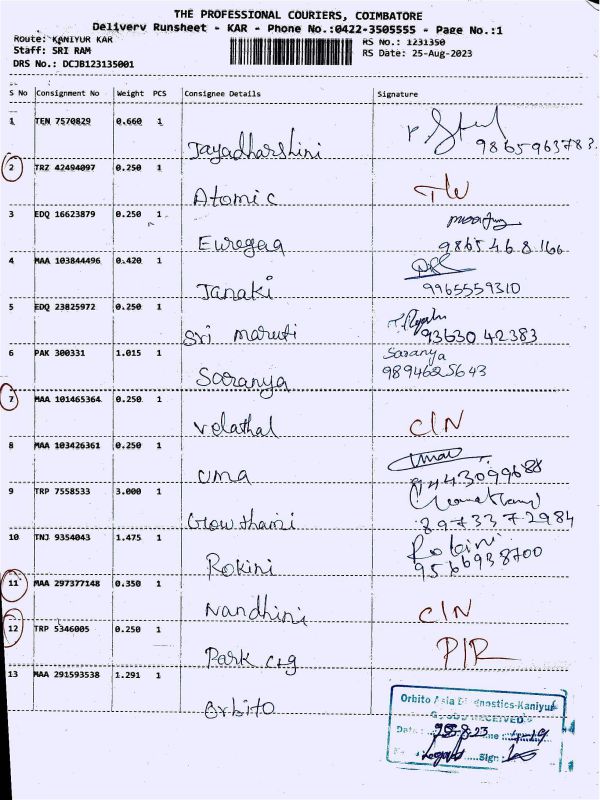 THE PROFESSIONAL COURIERS, COIMBATORE
Delivery Runsheet - KAR - Phone No.:0422-3505555 - Page No.:1
Route: KANIYUR KAR
RS No.: 1231350
Staff: SRI RAM
RS Date: 25-Aug-2023
DRS No.: DCJB123135001
S No Consignment No Weight PCS Consignee Details Signature
1 TEN 7570829 0.660 1 Jayadharshini 9865963783.
2 TRZ 42494097 0.250 1 Atomic
3 EDQ 16623879 0.250 1 Euregaa 9865468166
4 MAA 103844496 0.420 1 Janaki 9965559310
5 EDQ 23825972 0.250 1 Sri maruti 9363042383
6 PAK 300331 1.015 1 Saranya Saranya 9894625643
7 MAA 101465364 0.250 1 Velathal C/N
8 MAA 103426361 0.250 1 Uma Uma 9443099688
9 TRP 7558533 3.000 1 Gowthami 8973372984
10 TNJ 9354043 1.475 1 Rokini Rokini 9566938700
11 MAA 297377148 0.350 1 Nandhini C/N
12 TRP 5346005 0.250 1 Park P/R
13 MAA 291593538 1.291 1 Orbito
Orbito Asia Diagnostics-Kaniyur
GOODS RECEIVED
Date: Time:
Sign: